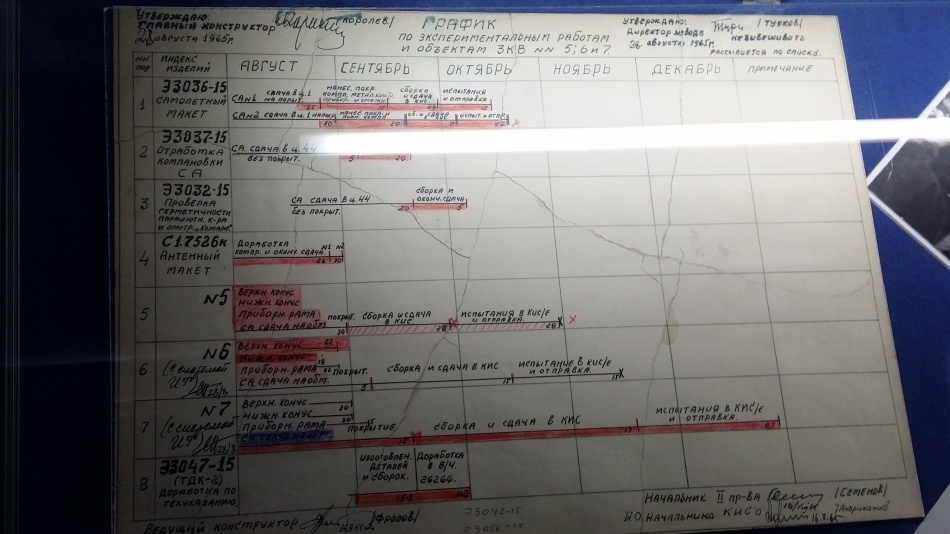 Утверждаю:
Главный конструктор /Королев/
28 августа 1965г.
ГРАФИК
по экспериментальным работам
и объектам 3КВ NN 5,6 и 7.
Утверждаю: /Турков/
Директор завода
28 августа 1965г.
невывешивать
рассылается по списку.
NN пор
Индекс изделий
Август
Сентябрь
Октябрь
Ноябрь
Декабрь
Примечание
1
Э3036-15
Самолетный
макет
СА№1 сдача в ц.1 на покрыт.
25
испытания
и отправка
сборка
и сдача
в КИС
СА№2 сдача в ц.1
2
Э3037-15
Отработка
компановки
СА
СА сдача в ц. 44
без покрыт.
5
20
3
Э3032-15
Проверка
герметичности
парашютн. к-ра
СА сдача в ц.44
без покрыт.
20
сборка и
оконч. сдача
5
4
С1.7526к
Антенный
макет
Доработка
компр. и оконч. сдач.
N1 N2
26 30
5
N5
Верхн. конус
Нижн. конус
Приборн. рама
СА сдача на обм.
покрыт.
30
сборка и сдача
в КИС.
28
испытания в КИС/е
и отправка.
28
6
N6
(с системой
ИТ) 28/8
Верхн. конус
22
Нижн. конус
Приборн. рама
СА сдача на обм.
покрыт.
5
сборка и сдача в КИС
15
испытание в КИС/е
и отправка.
7
N7
(с системой
ИТ) 28/8
Верхн. конус
Нижн. конус
30
Приборн. рама
СА сдача на обм.
покрытие
15
сборка и сдача в КИС
испытания в КИС/е
и отправка.
8
Э3047-15
(ТДК-2)
Доработка по
техуказанию
изготовлен.
деталей
и сборок.
Доработка
в В/Ч.
26266.
Ведущий конструктор /Фролов/
Э3042-15
Э3056-15
Начальник II пр-ва /Семенов/
И.О. Начальника КИС'а